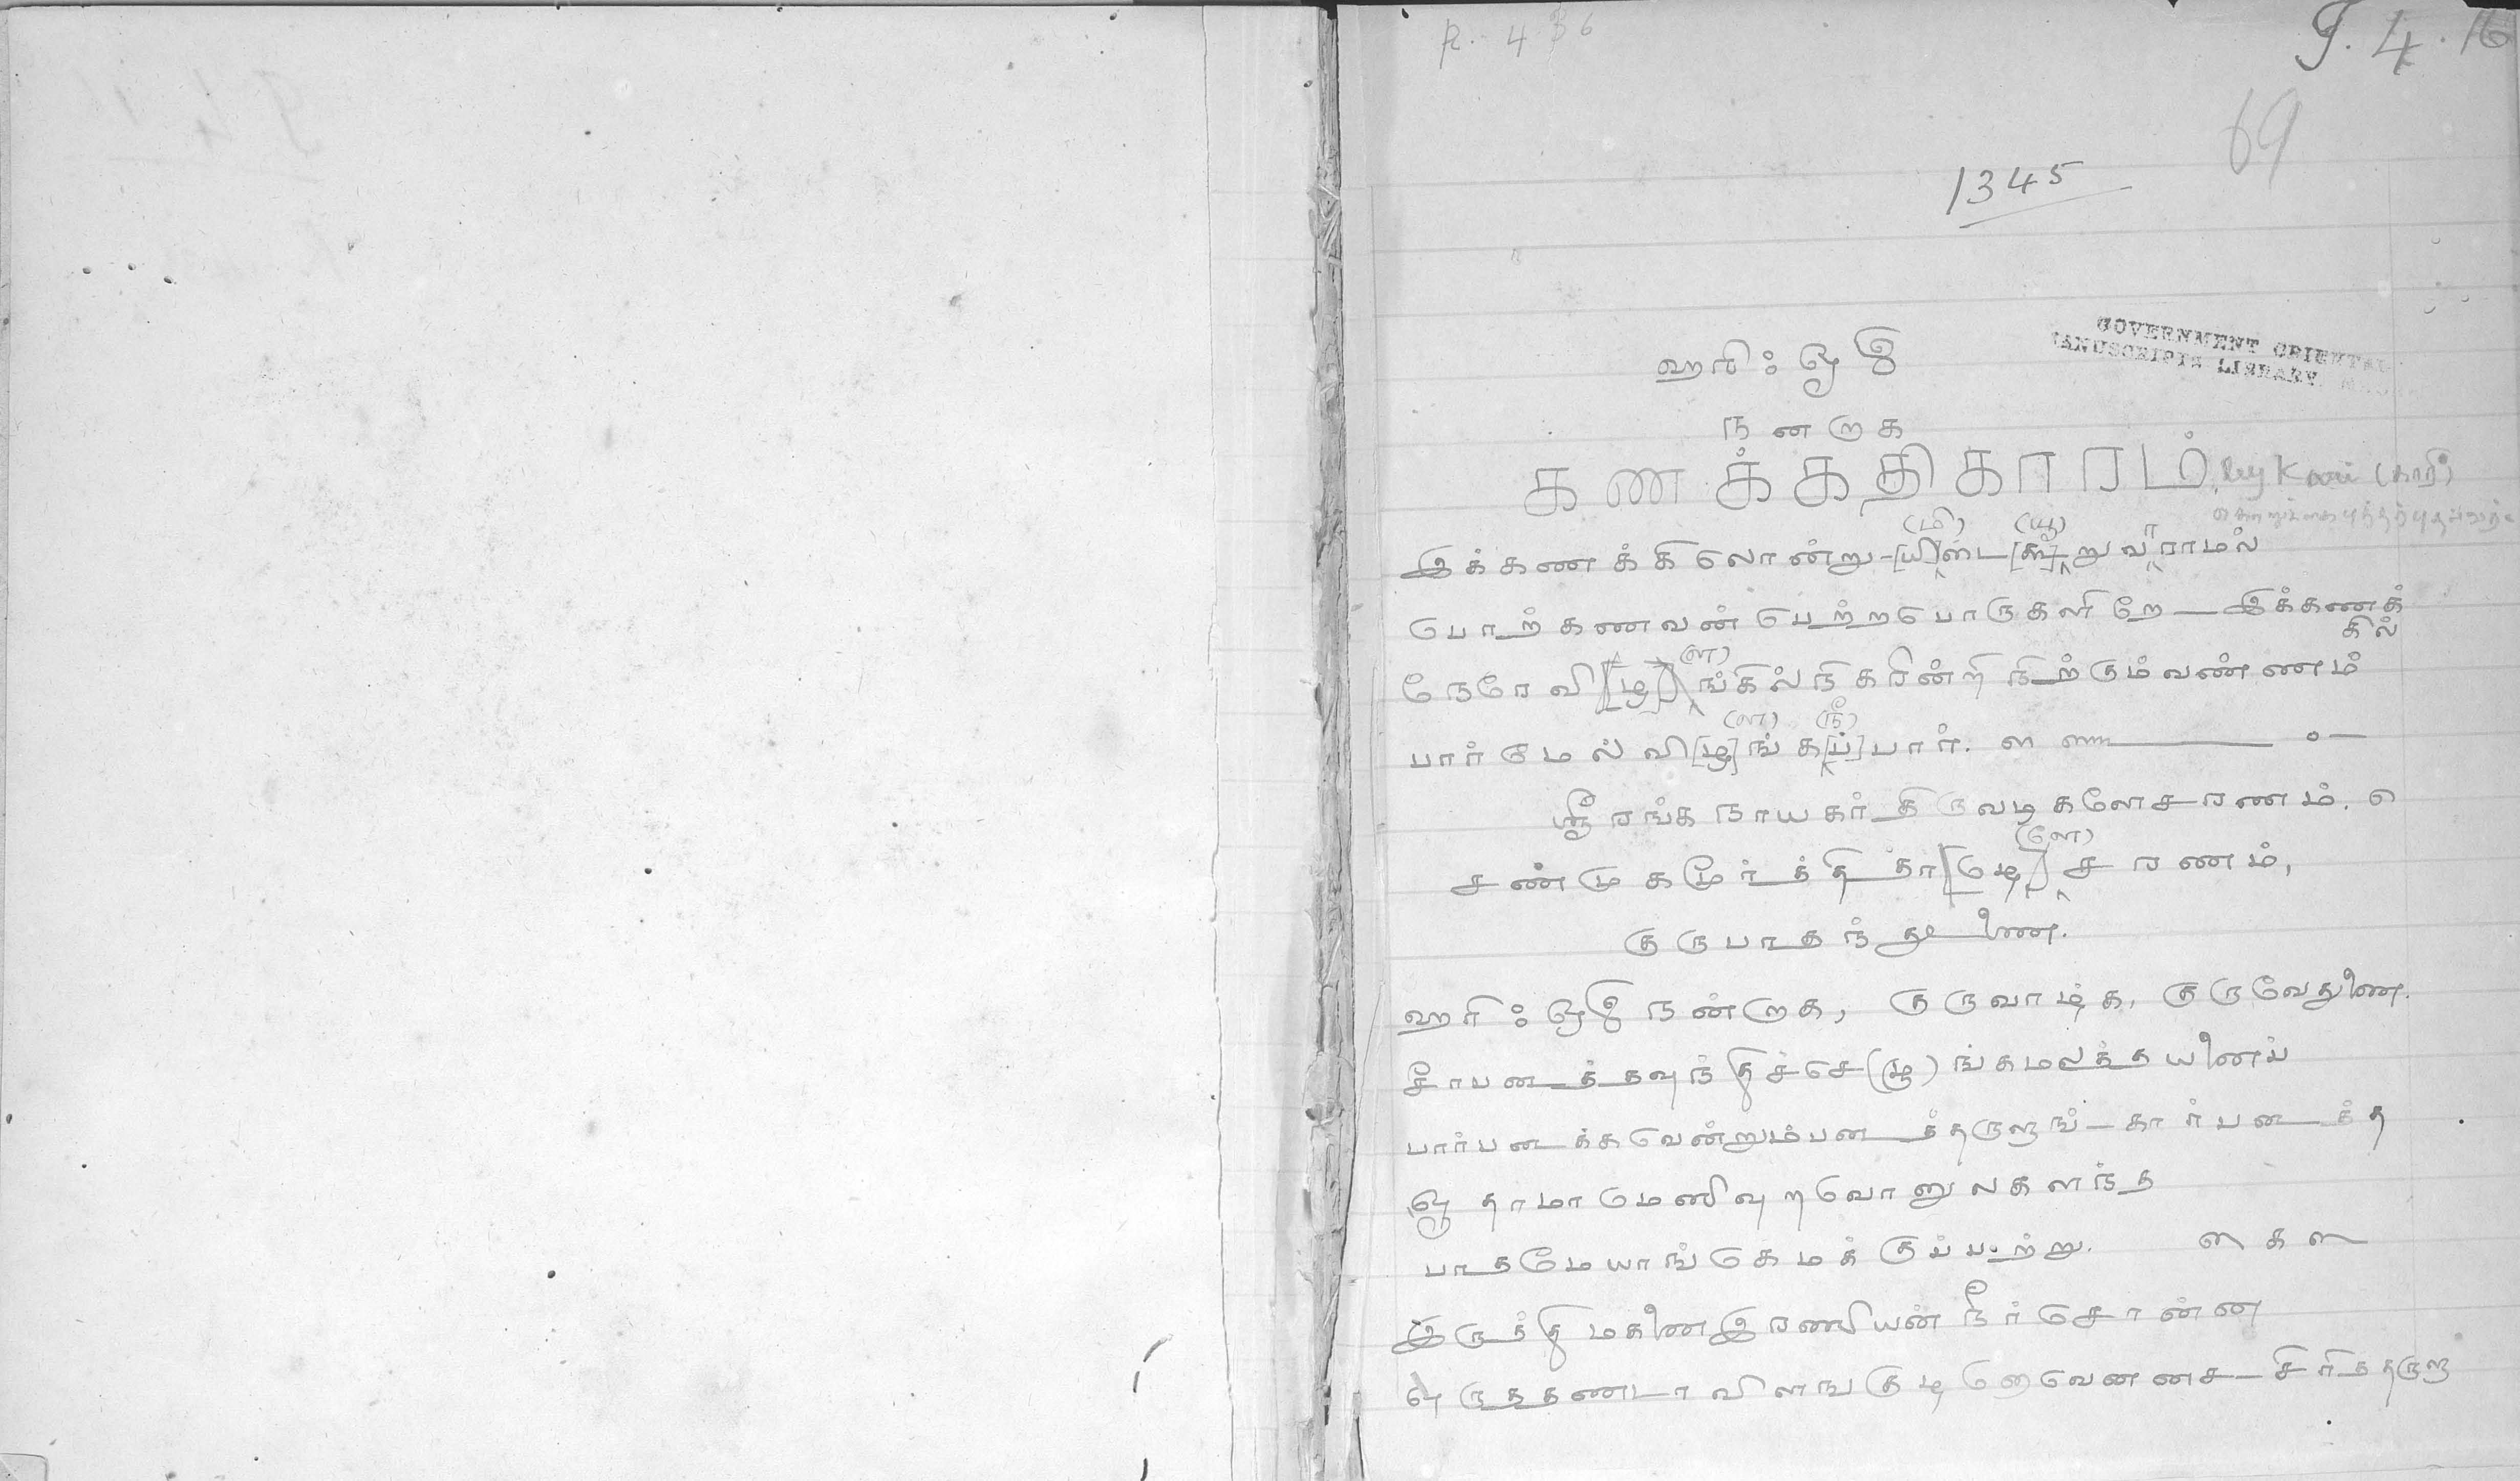 R. 436
J. 4. 16
69
1345
GOVERNMENT ORIENTAL
MANUSCRIPTS LIBRARY
ஹரி: ஓம்
நன்றாக
கணக்கதிகாரம். by Kari (காரி)
இக்கணக்கிலொன்று-[யி](மி)டை[யூ](யூ)றுவாராமல்
பொற்கணவன் பெற்றபொருகளிறே — இக்கணக்கில்
நேரே வி[ழ](ள)ங்கில்நிகரின்றி நிற்கும்வண்ணம்
பார்மேல் வி[ழ](ள)ங்க[ப்](நீ)பார்.
ஸ்ரீரங்கநாயகர் திருவடிகளேசரணம்.
சண்முகமூர்த்தி தா[ழே](ளே)சரணம்.
குருபாதந்துணை.
ஹரி: ஓம் நன்றாக, குருவாழ்க, குருவேதுணை.
சீர்படைத்தவுந்திச்செ(ழு)ங்கமலத்தயனைப்
பார்படைக்கவென்றும்படைத்தருளுங் — கார்படைத்த
பூதாமாமேனிவுறவோனுலகளந்த
பாதமேயாங்கெமக்குப்பற்று.
இருத்திமகனைஇரணியன் நீர்சொன்ன